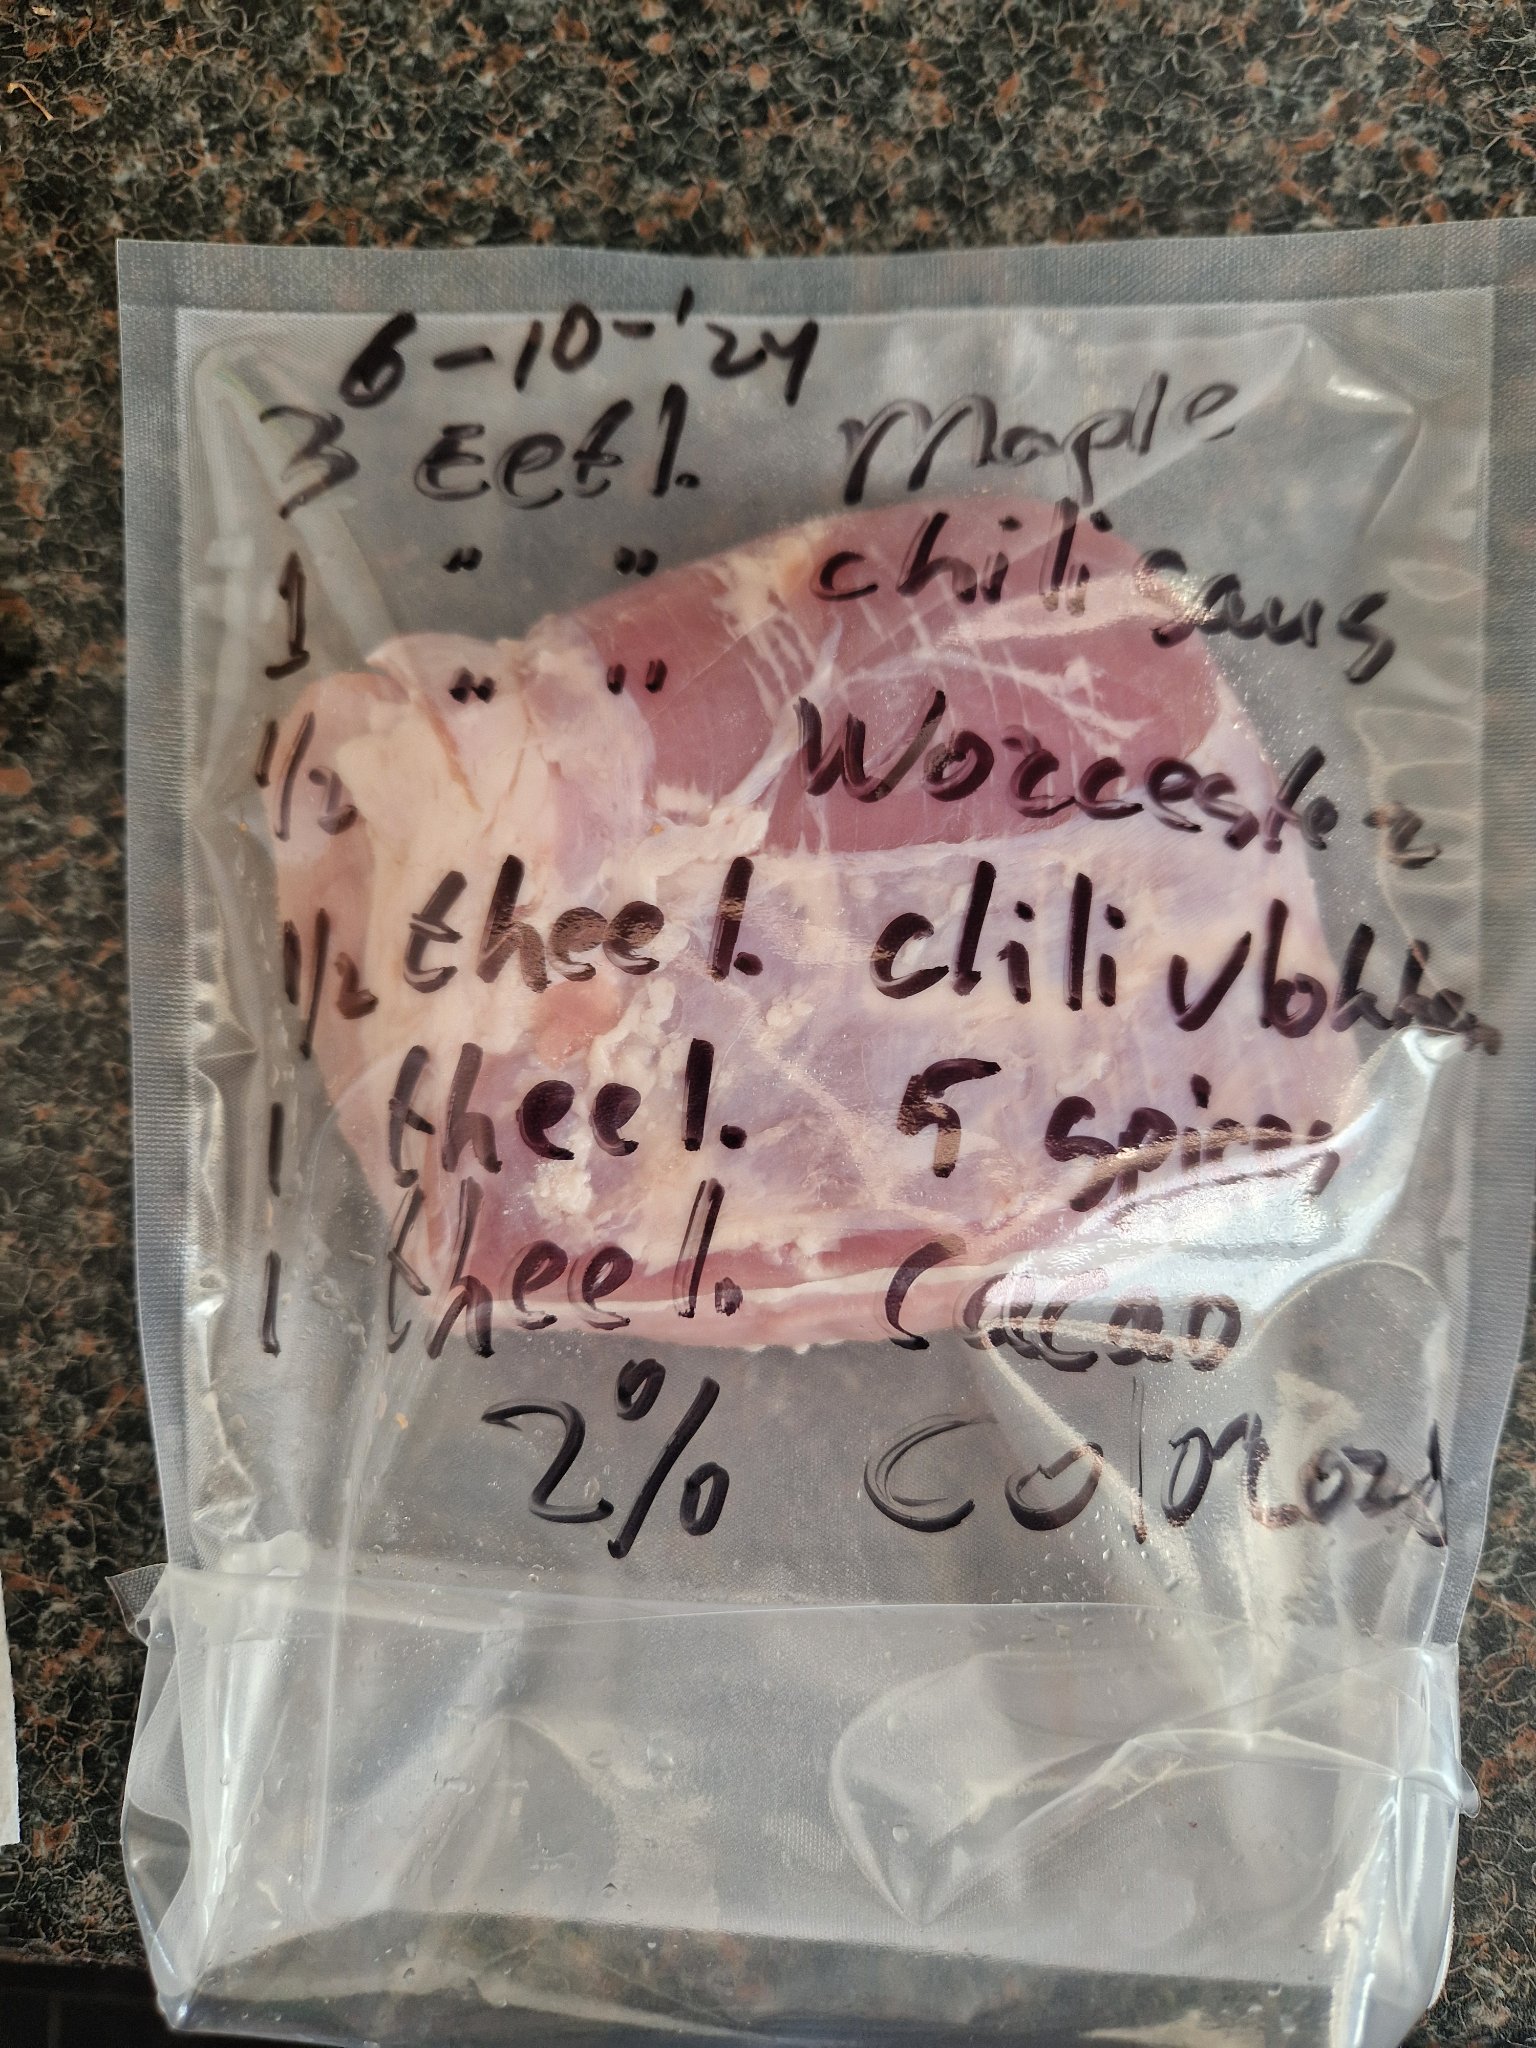 6-10-'24
3 Eetl. Maple
1 " " chili saus
1/2 " " Worcester
1/2 theel. chili vlokken
1 theel. 5 spicy
1 theel. Cacao
2% Colorozo